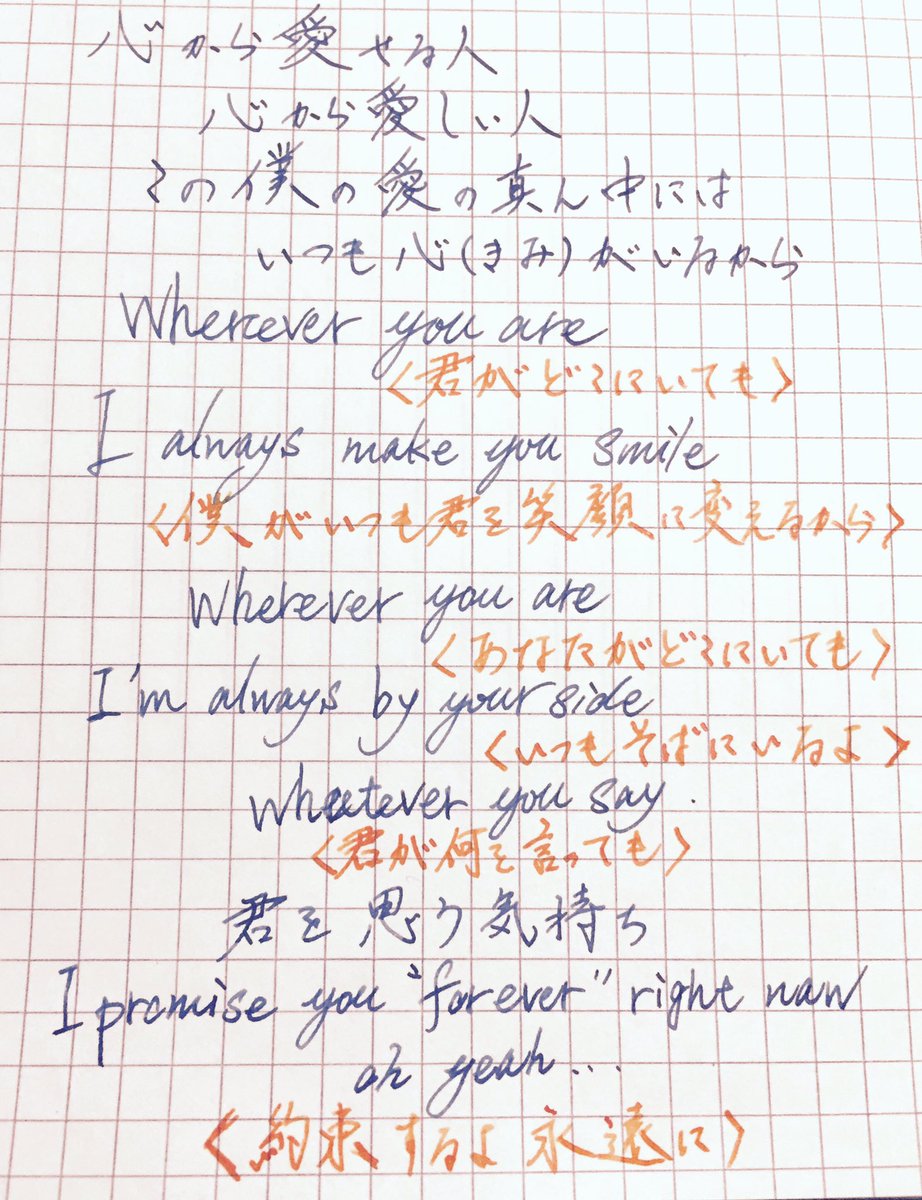 心から愛せる人
心から愛しい人
この僕の愛の真ん中には
いつも心(きみ)がいるから
Wherever you are
<君がどこにいても>
I always make you smile
<僕がいつも君を笑顔に変えるから>
Wherever you are
<あなたがどこにいても>
I'm always by your side
<いつもそばにいるよ>
Whatever you say.
<君が何を言っても>
君を思う気持ち
I promise you "forever" right now
oh yeah...
<約束するよ 永遠に>